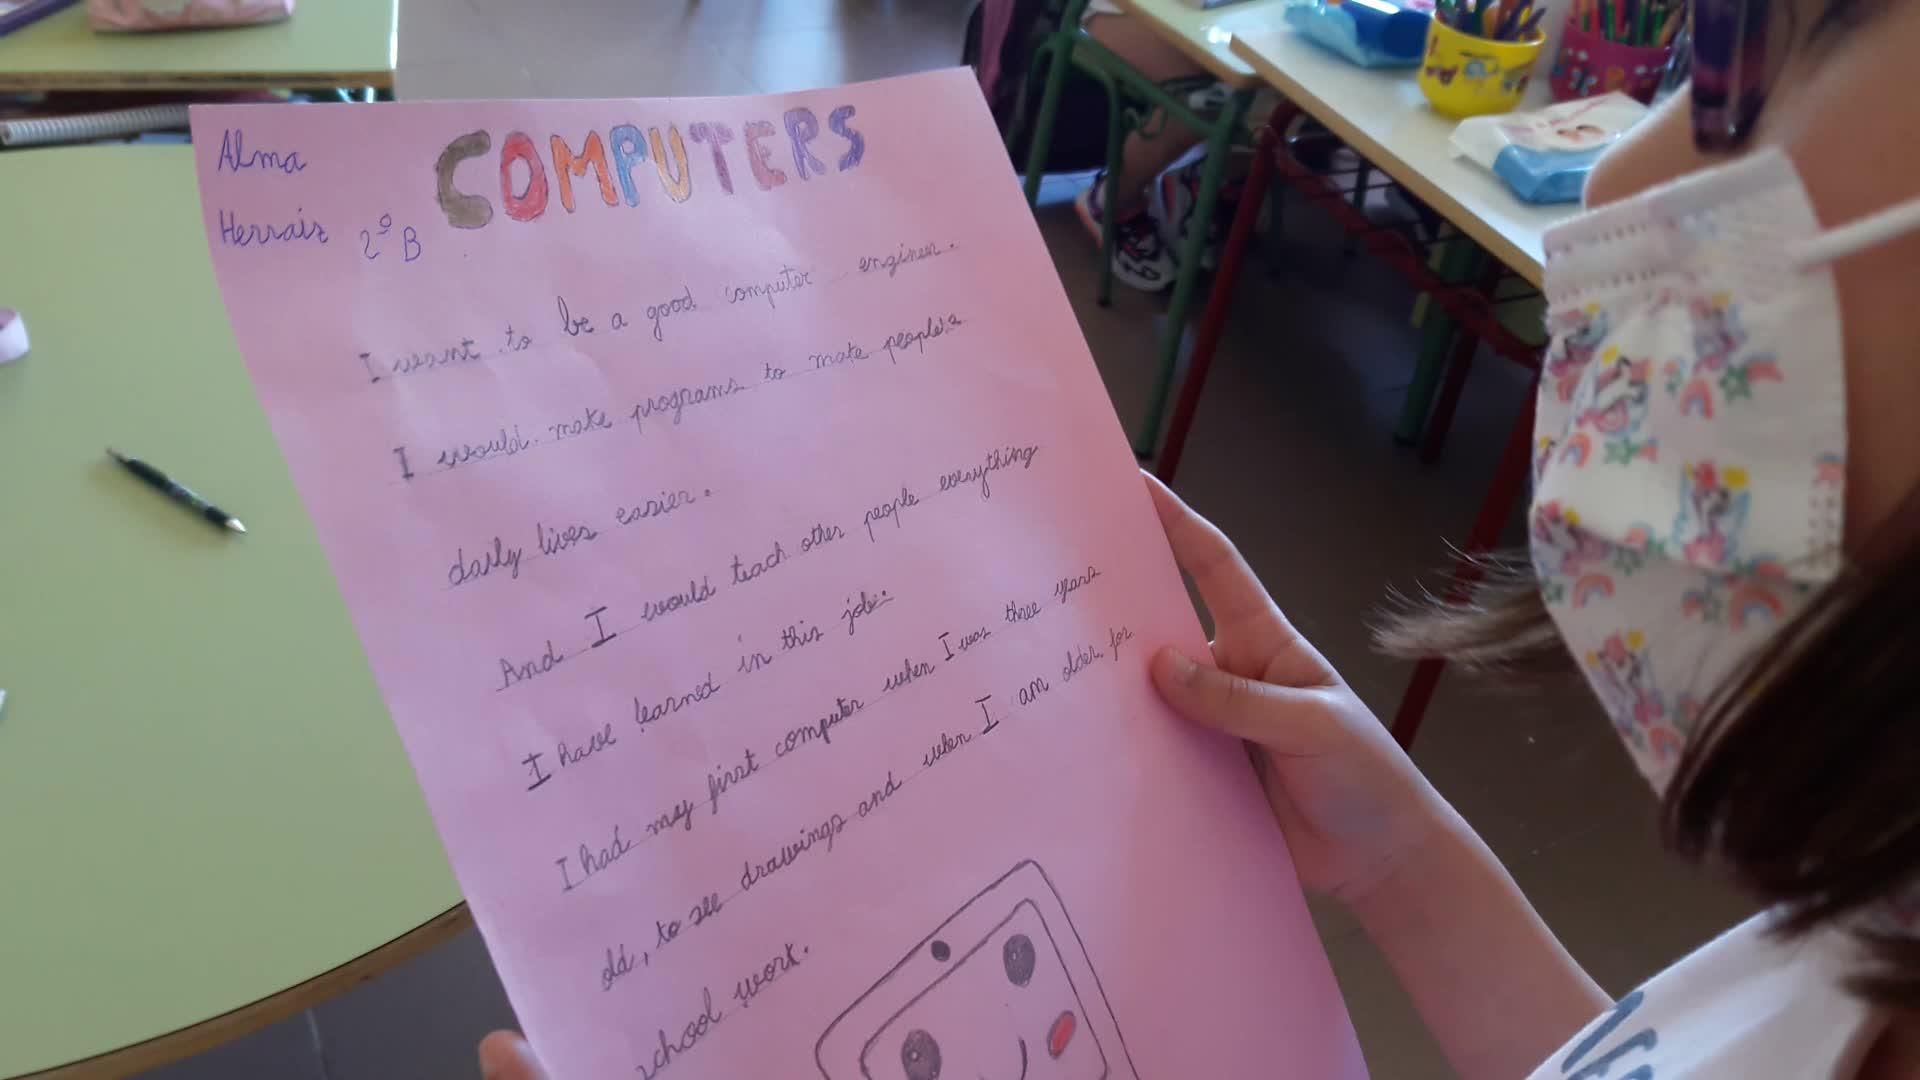 Alma
Herraiz 2º B
COMPUTERS
I want to be a good computer engineer.
I would make programs to make people's
daily lives easier.
And I would teach other people everything
I have learned in this job.
I had my first computer when I was three years
old, to see drawings and when I am older for
school work.